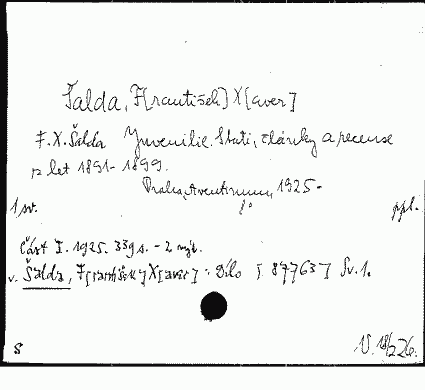 Šalda, F[rantišek] X[aver]
F. X. Šalda Juvenilie. Stati, články a recense
z let 1891-1899.
Praha, Aventinum, 1925-
8°
1 sv. ppl.
Část I. 1925. 339 s. - 2 mjt.
v. Šalda, F[rantišek] X[aver]: Dílo [87763] Sv. 1.
S V. 18/2 26.